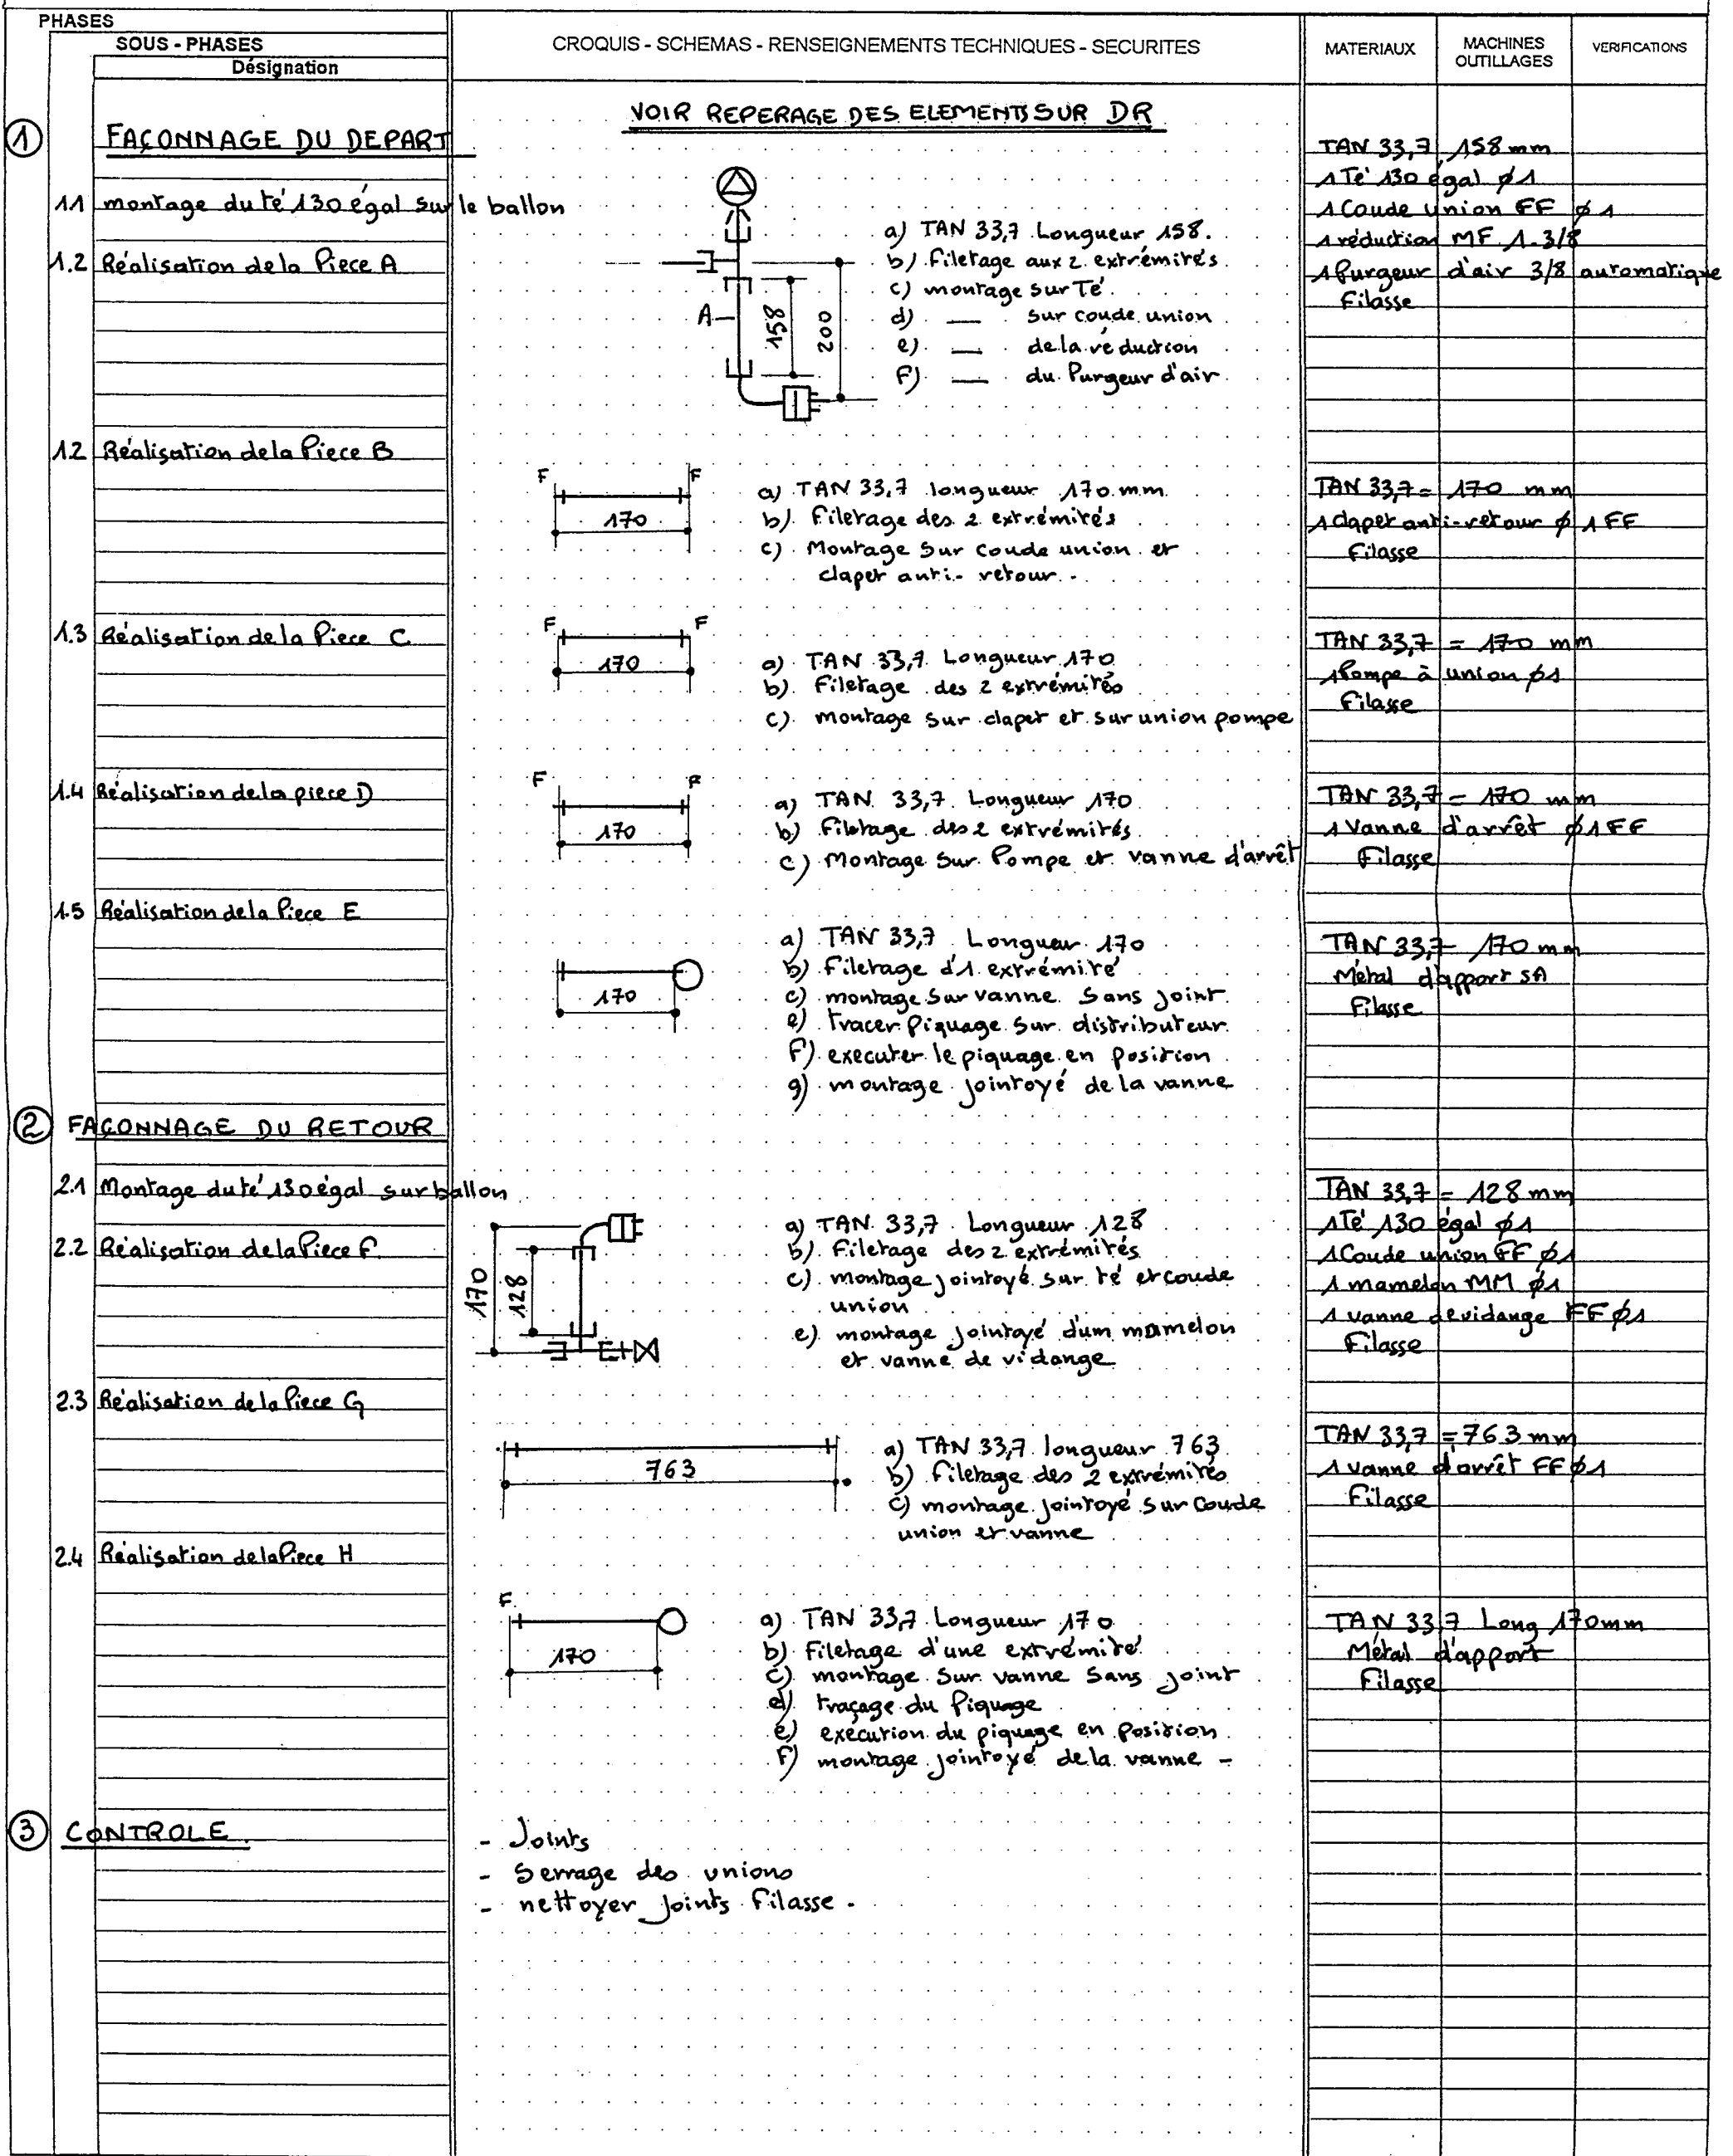 PHASES
SOUS - PHASES
Désignation
CROQUIS - SCHEMAS - RENSEIGNEMENTS TECHNIQUES - SECURITES
MATERIAUX
MACHINES
OUTILLAGES
VERIFICATIONS
VOIR REPERAGE DES ELEMENTS SUR DR
1 FAÇONNAGE DU DEPART
11 montage du té 130 égal sur le ballon
1.2 Réalisation de la Piece A
A
158
200
a) TAN 33,7 Longueur 158.
b) filetage aux 2 extrémités
c) montage sur Té
d) — sur coude union
e) — de la réduction
F) — du Purgeur d'air
TAN 33,7 158 mm
1 Té 130 égal ø1
1 Coude union FF ø1
1 réduction MF 1-3/8
1 Purgeur d'air 3/8 automatique
Filasse
1.2 Réalisation de la Piece B
F F
170
a) TAN 33,7 longueur 170 mm
b) Filetage des 2 extrémités
c) Montage sur coude union et
clapet anti-retour.
TAN 33,7 = 170 mm
1 clapet anti-retour ø 1 FF
Filasse
1.3 Réalisation de la Piece C
F F
170
a) TAN 33,7 Longueur 170
b) Filetage des 2 extrémités
c) montage sur clapet et sur union pompe
TAN 33,7 = 170 mm
1 Pompe à union ø1
Filasse
1.4 Réalisation de la piece D
F F
170
a) TAN 33,7 Longueur 170
b) Filetage des 2 extrémités
c) Montage sur Pompe et vanne d'arrêt
TAN 33,7 = 170 mm
1 Vanne d'arrêt ø1 FF
Filasse
1.5 Réalisation de la Piece E
170
a) TAN 33,7 Longueur 170
b) Filetage d'1 extrémité
c) montage sur vanne sans joint
e) tracer Piquage sur distributeur
F) executer le piquage en position
g) montage jointoyé de la vanne
TAN 33,7 = 170 mm
Métal d'apport SA
Filasse
2 FAÇONNAGE DU RETOUR
2.1 Montage du té 130 égal sur ballon
2.2 Réalisation de la Piece F
170
128
a) TAN 33,7 Longueur 128
b) Filetage des 2 extrémités
c) montage jointoyé sur té et coude
union
e) montage jointoyé d'um mamelon
et vanne de vidange
TAN 33,7 = 128 mm
1 Té 130 égal ø1
1 Coude union FF ø1
1 mamelon MM ø1
1 vanne de vidange FF ø1
Filasse
2.3 Réalisation de la Piece G
763
a) TAN 33,7 longueur 763
b) filetage des 2 extrémités
c) montage jointoyé sur coude
union et vanne
TAN 33,7 = 763 mm
1 vanne d'arrêt FF ø1
Filasse
2.4 Réalisation de la Piece H
F
170
a) TAN 33,7 Longueur 170
b) Filetage d'une extrémité
c) montage sur vanne sans joint
d) traçage du Piquage
e) execution du piquage en Position
F) montage jointoyé de la vanne -
TAN 33,7 Long 170mm
Métal d'apport
Filasse
3 CONTROLE
- Joints
- Serrage des unions
- nettoyer joints filasse -